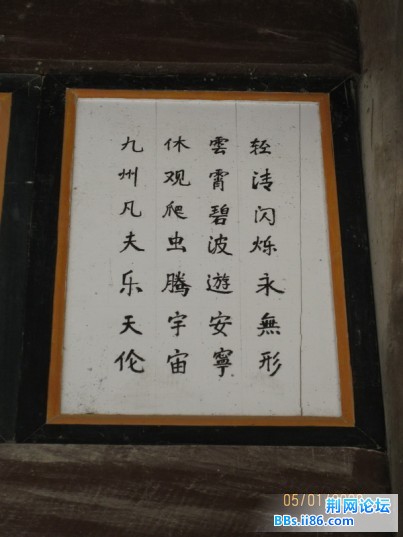 轻洼闪烁永無形
雲霄碧波遊安寧
休观爬虫腾宇宙
九州凡夫乐天伦
05/01/
荆网论坛
BBs.ii86.com